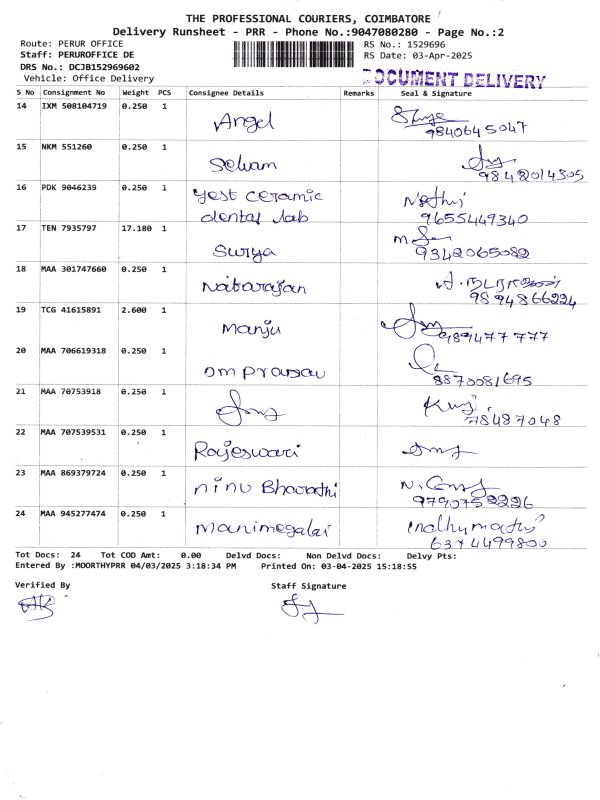 THE PROFESSIONAL COURIERS, COIMBATORE
Delivery Runsheet - PRR - Phone No.:9047080280 - Page No.:2
Route: PERUR OFFICE
RS No.: 1529696
Staff: PERUROFFICE DE
RS Date: 03-Apr-2025
DRS No.: DCJB152969602
Vehicle: Office Delivery
DOCUMENT DELIVERY
S No Consignment No Weight PCS Consignee Details Remarks Seal & Signature
14 IXM 508104719 0.250 1
Angel
9840645047
15 NKM 551260 0.250 1
Selvam
9842014305
16 PDK 9046239 0.250 1
yest ceramic
dental lab
9655449340
17 TEN 7935797 17.180 1
Surya
9342065082
18 MAA 301747660 0.250 1
Natarajan
9894866224
19 TCG 41615891 2.600 1
Manju
989477 777
20 MAA 706619318 0.250 1
8870081695
21 MAA 70753918 0.250 1
78487048
22 MAA 707539531 0.250 1
Rajeswari
23 MAA 869379724 0.250 1
ninu Bharathi
9790752226
24 MAA 945277474 0.250 1
Manimegalai
6374499800
Tot Docs: 24 Tot COD Amt: 0.00 Delvd Docs: Non Delvd Docs: Delvy Pts:
Entered By :MOORTHYPRR 04/03/2025 3:18:34 PM Printed On: 03-04-2025 15:18:55
Verified By Staff Signature